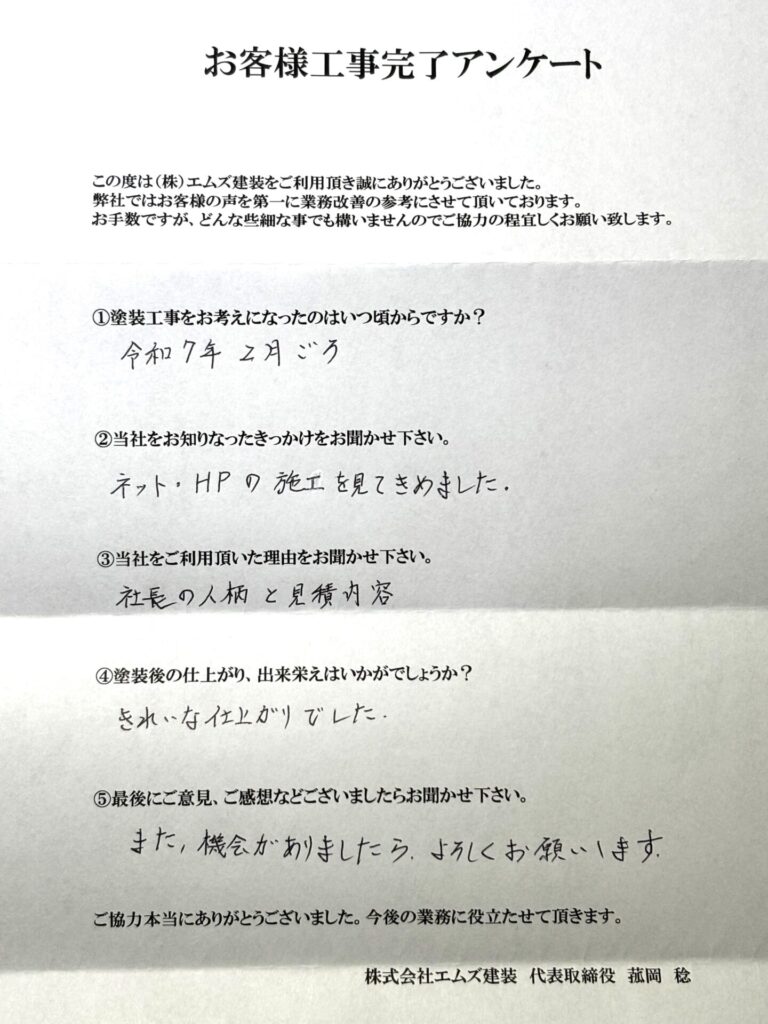 お客様工事完了アンケート
この度は（株）エムズ建装をご利用頂き誠にありがとうございました。
弊社ではお客様の声を第一に業務改善の参考にさせて頂いております。
お手数ですが、どんな些細な事でも構いませんのでご協力の程宜しくお願い致します。
①塗装工事をお考えになったのはいつ頃からですか？
令和7年 2月ごろ
②当社をお知りなったきっかけをお聞かせ下さい。
ネット・HPの施工を見てきめました.
③当社をご利用頂いた理由をお聞かせ下さい。
社長の人柄と見積内容
④塗装後の仕上がり、出来栄えはいかがでしょうか？
きれいな仕上がりでした.
⑤最後にご意見、ご感想などございましたらお聞かせ下さい。
また,機会がありましたら.よろしくお願いします.
ご協力本当にありがとうございました。今後の業務に役立たせて頂きます。
株式会社エムズ建装 代表取締役 菰岡 稔